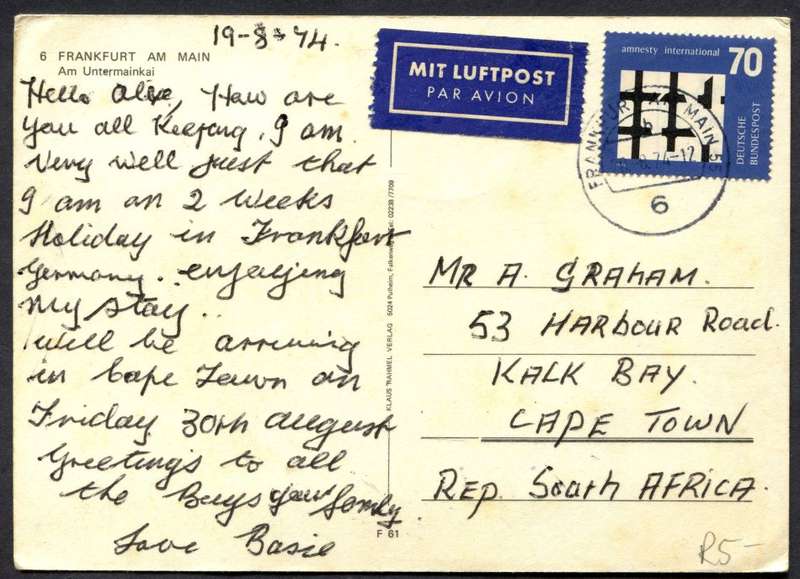 19-8-74.
6 FRANKFURT AM MAIN
Am Untermainkai
Hello Olive, How are
you all Keeping. I am
very well just that
I am on 2 weeks
Holiday in Frankfort
Germany.. enjoying
my stay..
will be arriving
in Cape Town on
Friday 30th August
Greetings to all
the Boys your family.
Love Basie
MIT LUFTPOST
PAR AVION
amnesty international 70
DEUTSCHE
BUNDESPOST
FRANKFURT AM MAIN 55
6
KLAUS RAHMEL VERLAG 5024 Pulheim, Tel.: 02238/7709
F 61
MR A. GRAHAM.
53 HARBOUR Road.
KALK BAY.
CAPE TOWN
REP. South AFRICA.
R5-